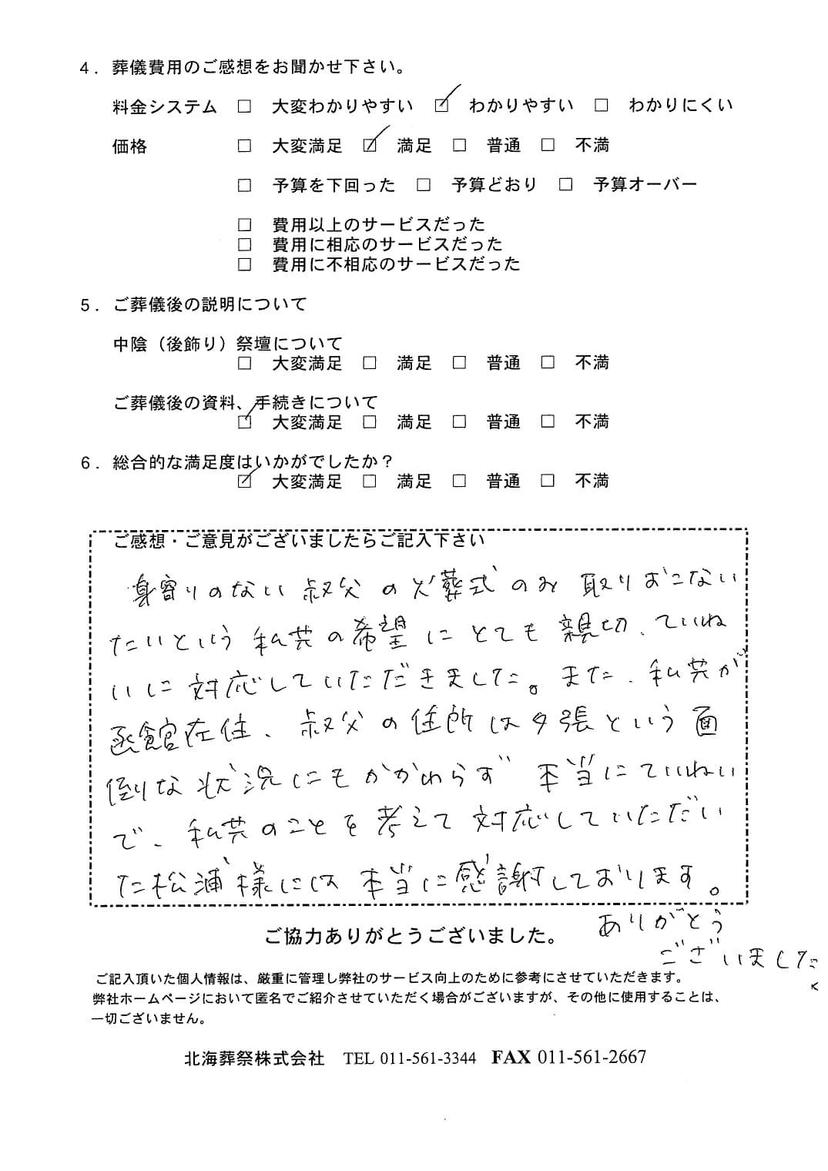 4．葬儀費用のご感想をお聞かせ下さい。
料金システム □ 大変わかりやすい ☑ わかりやすい □ わかりにくい
価格 □ 大変満足 ☑ 満足 □ 普通 □ 不満
□ 予算を下回った □ 予算どおり □ 予算オーバー
□ 費用以上のサービスだった
□ 費用に相応のサービスだった
□ 費用に不相応のサービスだった
5．ご葬儀後の説明について
中陰（後飾り）祭壇について
□ 大変満足 □ 満足 □ 普通 □ 不満
ご葬儀後の資料、手続きについて
☑ 大変満足 □ 満足 □ 普通 □ 不満
6．総合的な満足度はいかがでしたか？
☑ 大変満足 □ 満足 □ 普通 □ 不満
ご感想・ご意見がございましたらご記入下さい
身寄りのない叔父の火葬式のみ取りおこない
たいという私共の希望にとても親切、ていね
いに対応していただきました。また、私共が
函館在住、叔父の住所は夕張という面
倒な状況にもかかわらず本当にていねい
で、私共のことを考えて対応していただい
た松浦様には本当に感謝しております。
ありがとう
ございました
ご協力ありがとうございました。
ご記入頂いた個人情報は、厳重に管理し弊社のサービス向上のために参考にさせていただきます。
弊社ホームページにおいて匿名でご紹介させていただく場合がございますが、その他に使用することは、
一切ございません。
北海葬祭株式会社 TEL 011-561-3344 FAX 011-561-2667